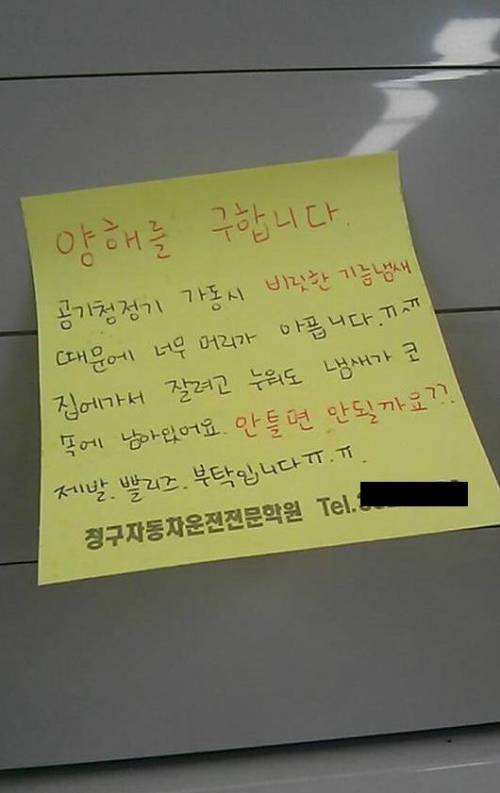 양해를 구합니다.
공기청정기 가동시 비릿한 기름냄새
때문에 너무 머리가 아픕니다.ㅠ.ㅠ
집에가서 잘려고 누워도 냄새가 코
쏙에 남아있어요. 안틀면 안될까요??.
제발. 쁠리즈. 부탁입니다ㅠ.ㅠ.
청구자동차운전전문학원 Tel.